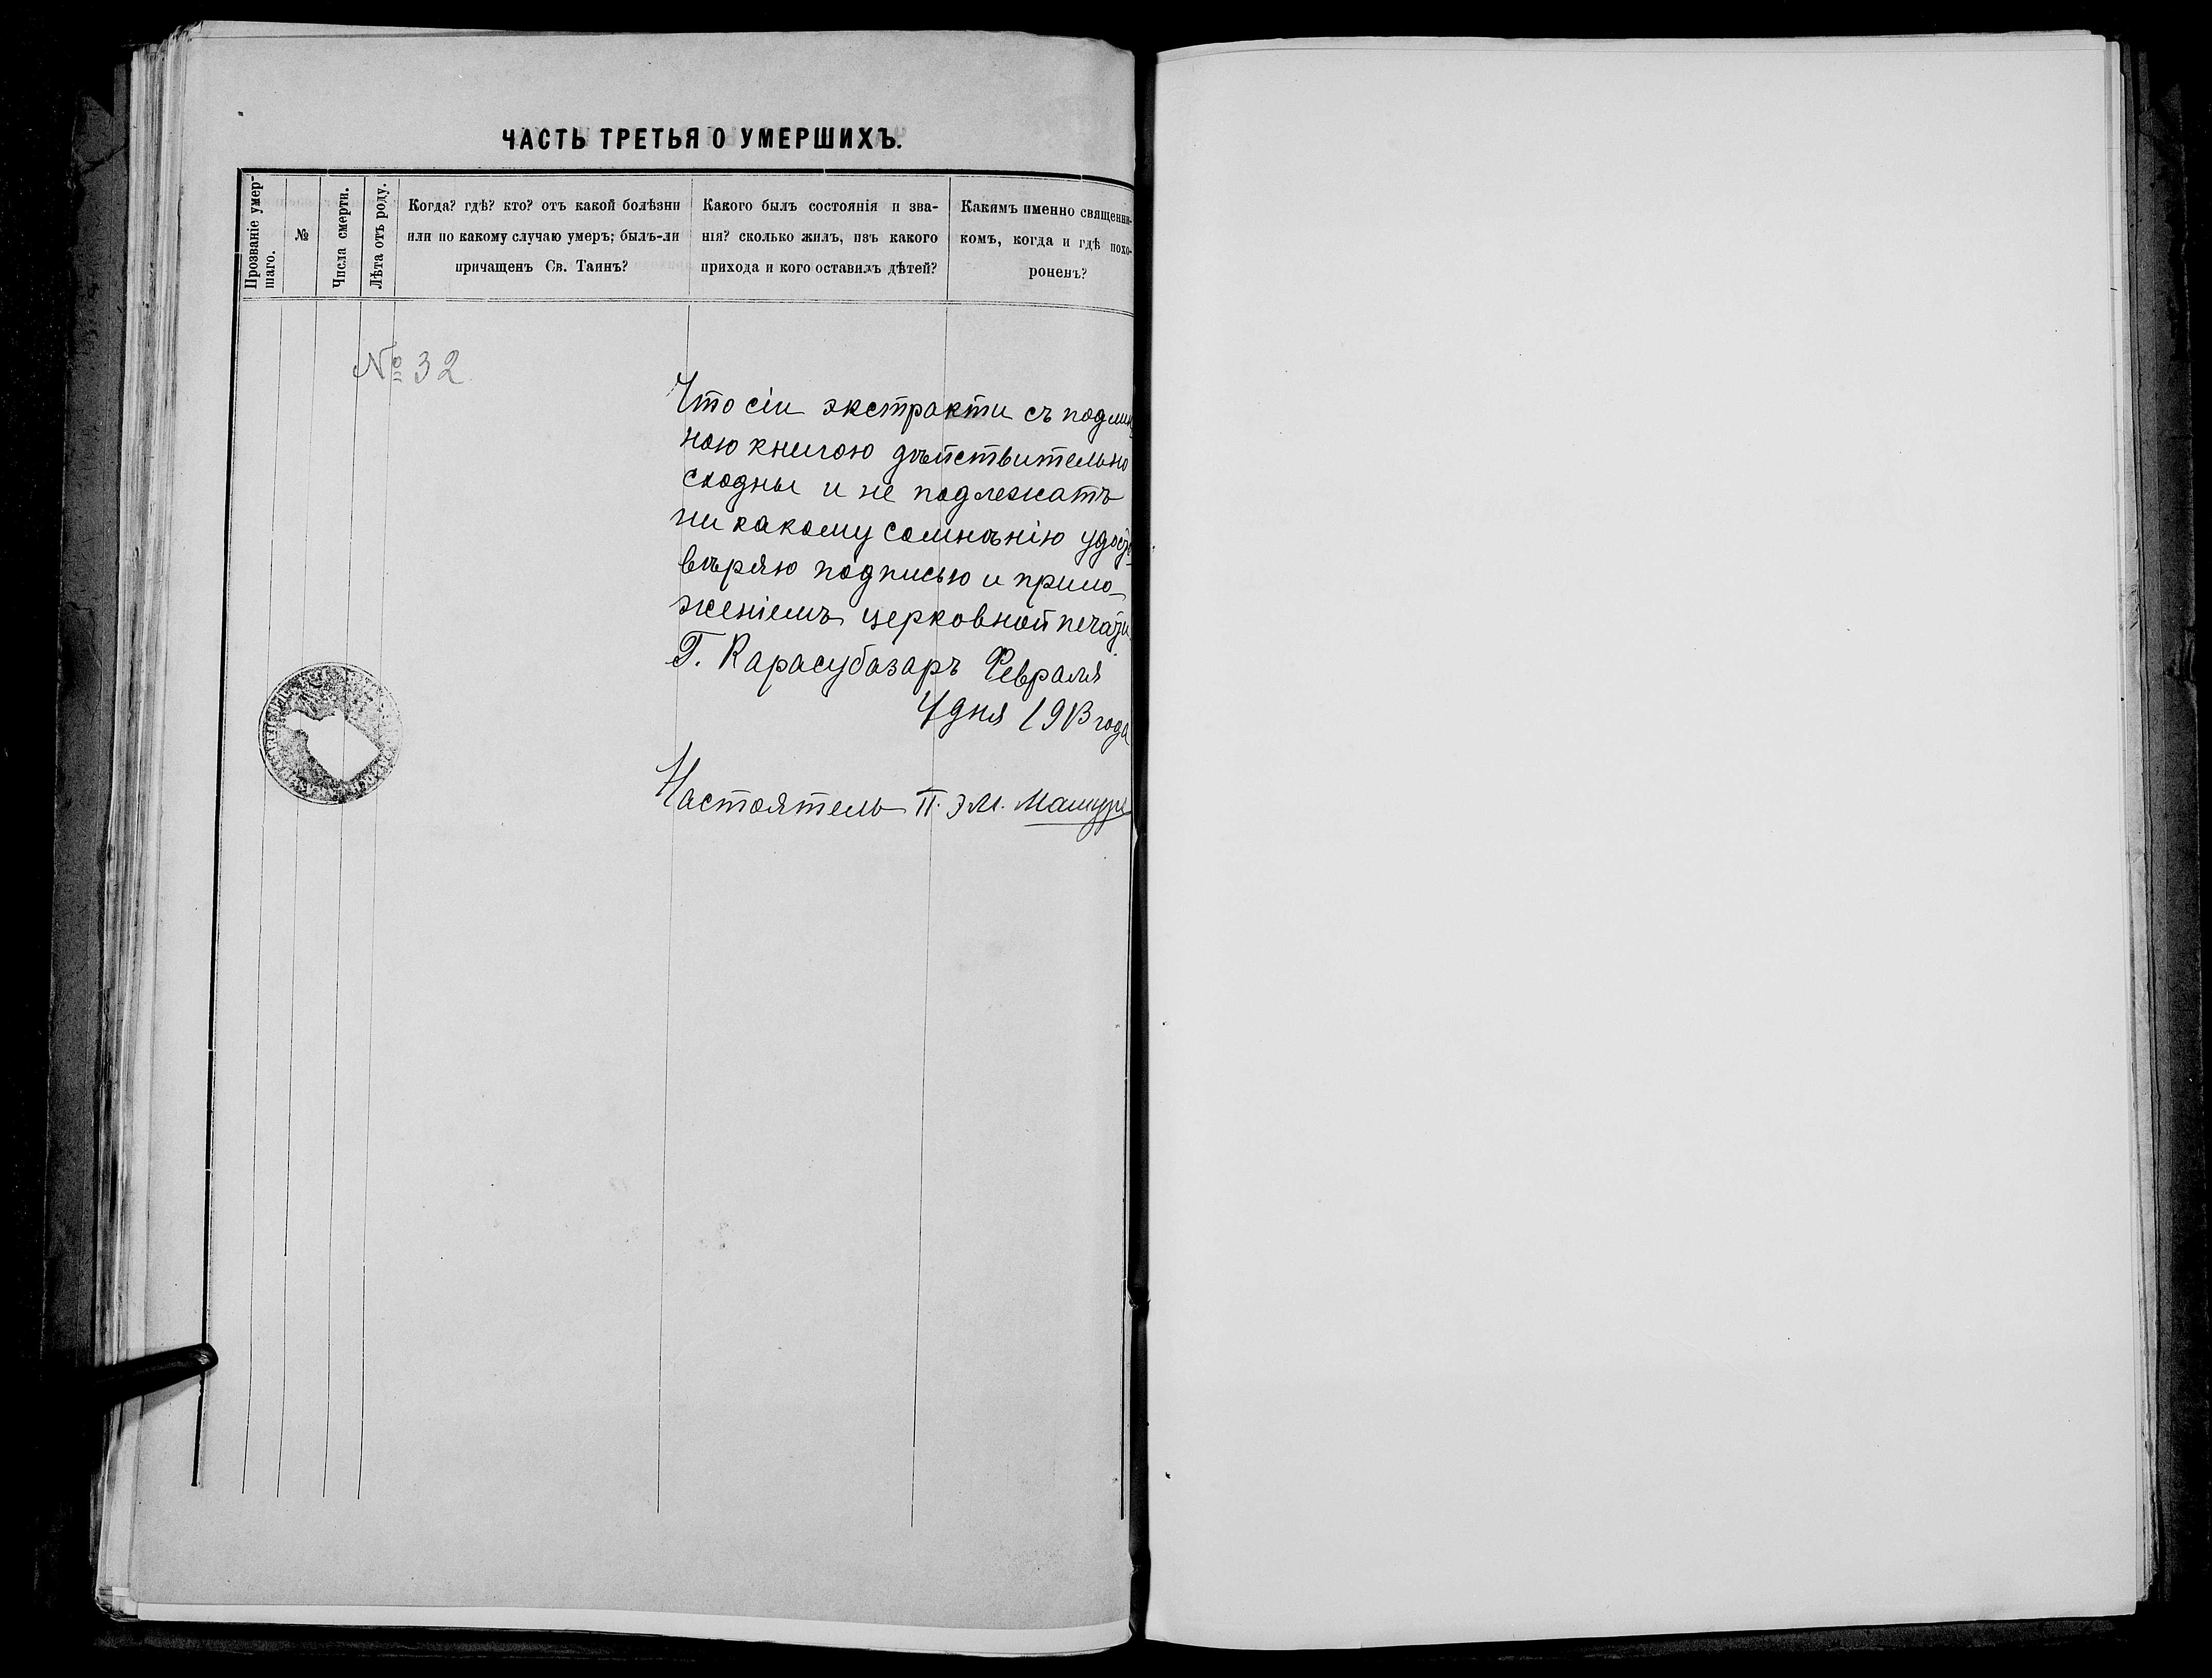 ЧАСТЬ ТРЕТЬЯ О УМЕРШИХЪ.
Прозваніе умер-
шаго.
№
Числа смерти.
Лѣта отъ роду.
Когда? гдѣ? кто? отъ какой болѣзни
или по какому случаю умеръ; былъ-ли
причащенъ Св. Таинъ?
Какого былъ состоянія и зва-
нія? сколько жилъ, изъ какого
прихода и кого оставилъ дѣтей?
Какимъ именно священни-
комъ, когда и гдѣ похо-
роненъ?
№ 32
Что сіи экстракти съ подлин
ною книгою дѣйствительно
сходны и не подлежатъ
ни какому сомнѣнію удосто
вѣряю подписью и прило-
женіемъ церковной печати.
Г. Карасубазаръ Февраля
4 дня 1913 года
Настоятель П. Э М.